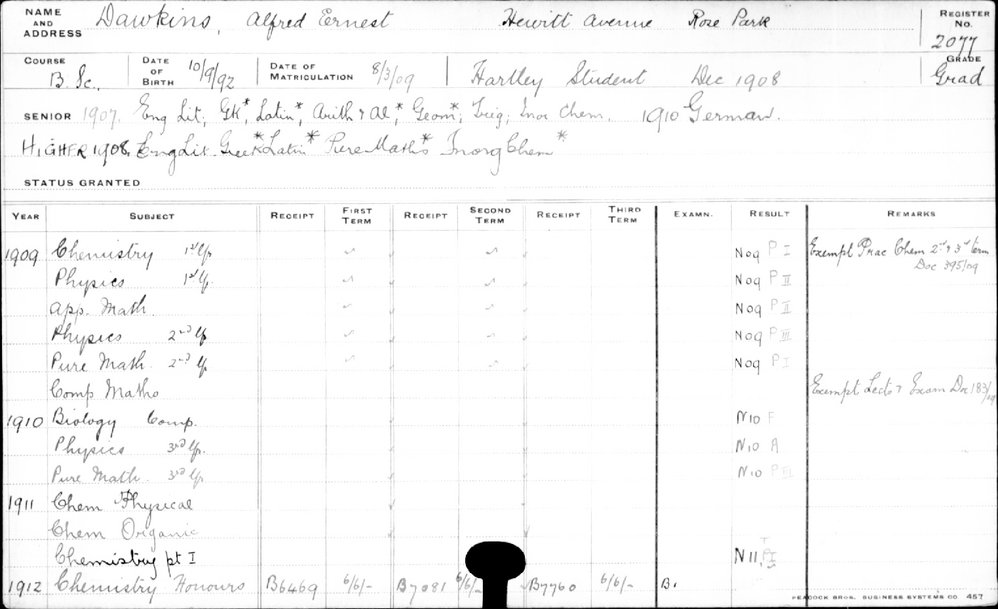 NAME AND ADDRESS Dawkins, Alfred Ernest Hewitt Avenue Rose Park REGISTER No. 2077
COURSE B. Sc. DATE OF BIRTH 10/9/92 DATE OF MATRICULATION 8/3/09 Hartley Student Dec 1908 GRADE Grad
SENIOR 1907. Eng Lit, Gk*, Latin*, Arith & Al*, Geom*, Trig, Inor Chem. 1910 German.
HIGHER 1908. Eng Lit. Greek* Latin* Pure Maths* Inorg Chem*
STATUS GRANTED
YEAR SUBJECT RECEIPT FIRST TERM RECEIPT SECOND TERM RECEIPT THIRD TERM EXAMN. RESULT REMARKS
1909 Chemistry 1st yr N09 P I Exempt Prac Chem 2nd & 3rd term
Doc 395/09
Physics 1st yr. N09 P II
App. Math. N09 P II
Physics 2nd yr N09 P III
Pure Math. 2nd yr N09 P I
Comp Maths Exempt Lects & Exam Doc 183/09
1910 Biology Comp. N10 F
Physics 3rd yr. N10 A
Pure Math. 3rd yr N10 P III
1911 Chem Physical
Chem Organic
Chemistry pt I N11, P I
1912 Chemistry Honours B6469 6/6/- B7081 6/6/- B7760 6/6/- B.
PEACOCK BROS. BUSINESS SYSTEMS CO. 457